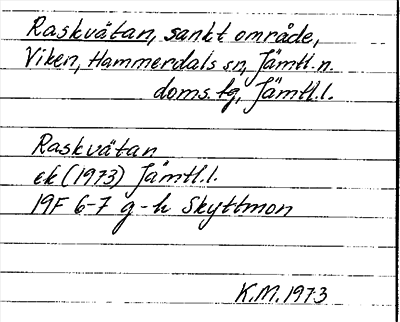 Raskvätan, sankt område,
Viken, Hammerdals sn, Jämtl. n.
doms. tg, Jämtl. l.
Raskvätan
ek (1973) Jämtl. l.
19F 6-7 g-h Skyttmon
K.M. 1973